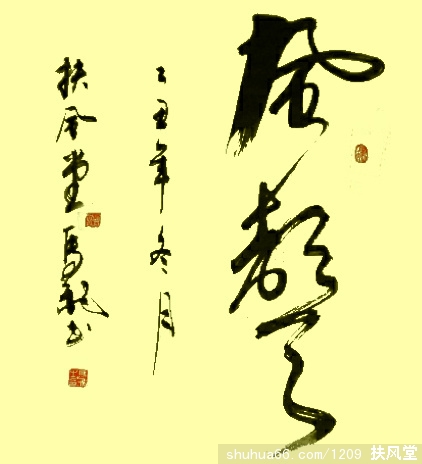 風聲
己丑年冬月
扶風堂馬 书
shuhua66.com/1209 扶风堂